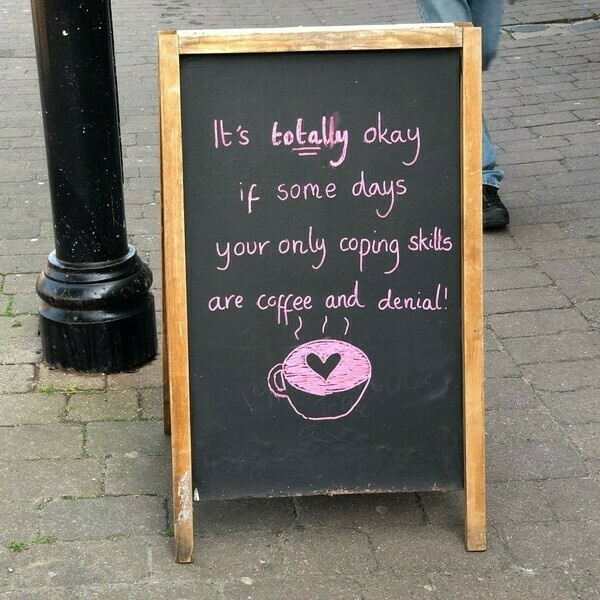 It's totally okay
if some days
your only coping skills
are coffee and denial!